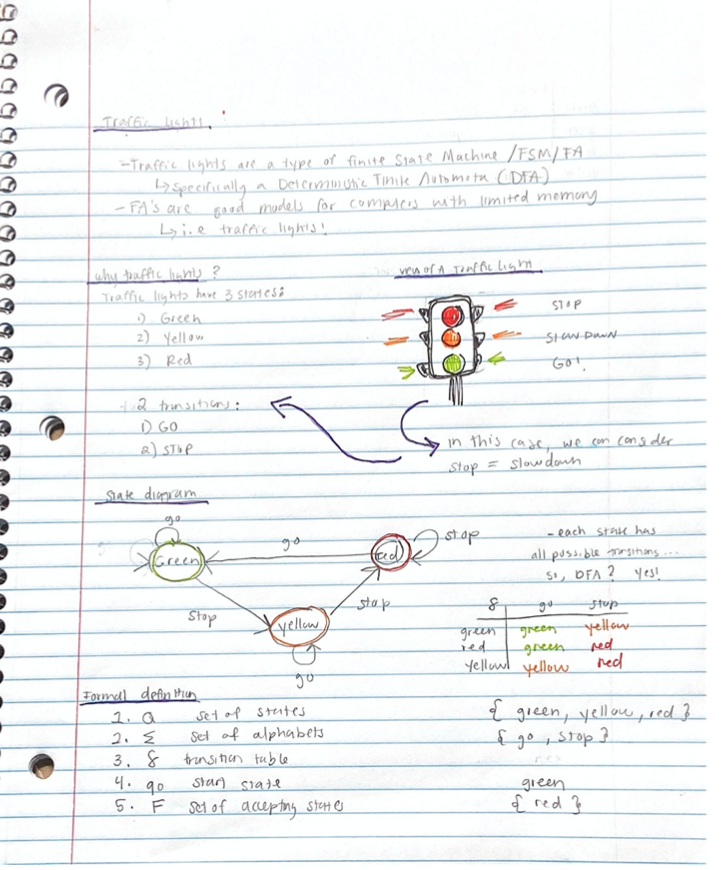 Traffic lights
- Traffic lights are a type of finite State Machine /FSM/FA
↳ specifically a Deterministic Finite Automota (DFA)
- FA's are good models for computers with limited memory
↳ i.e traffic lights!
why traffic lights ?
Traffic lights have 3 states:
1) Green
2) Yellow
3) Red
2 transitions:
1) GO
2) STOP
view of a Traffic Light
STOP
SLOW DOWN
GO!
in this case, we can consder
stop = slowdown
State diagram
go
Green
go
red
stop
Stop
yellow
stop
go
- each state has
all possible transitions...
so, DFA? Yes!
δ go stop
green green yellow
red green red
yellow yellow red
Formal definition
1. Q set of states { green, yellow, red }
2. Σ set of alphabets { go, stop }
3. δ transition table
4. q0 start state green
5. F set of accepting states { red }